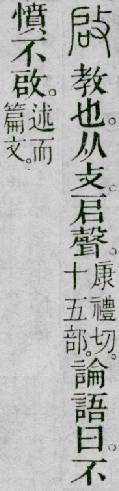 啟教也。从攴。启聲。康禮切。十五部。論語曰。不
憤不啟。述而篇文。